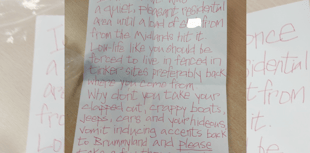 a quiet, pleasant, residential
area until a load of from
from the Midlands hit it
like you should be
forced to live in fenced in
sites preferably back
where you came from.
Why don't you take your
clapped out, crappy boats,
Jeeps, cars and your hideous
vomit inducing accents back
to Brummyland and please